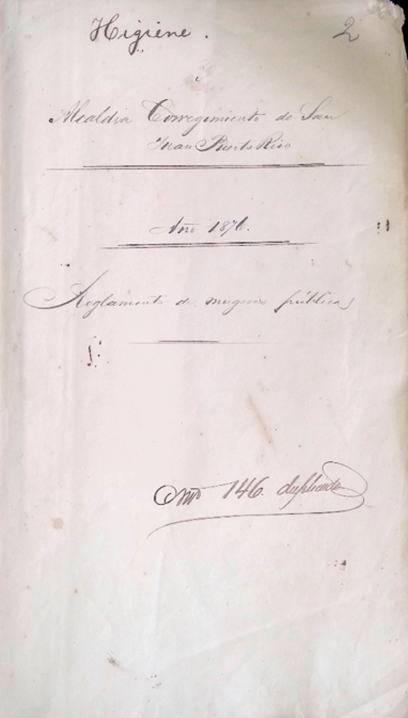 Higiene.
2
Alcaldia Corregimiento de San
Juan Puerto Rico
Año 1876.
Reglamento de mugeres públicas
146. duplicado